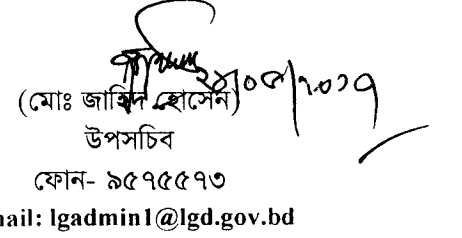 ২৪/০৫/২০১৭
(মোঃ জাহিদ হোসেন)
উপসচিব
ফোন- ৯৫৭৫৫৭৩
nail: lgadmin1@lgd.gov.bd